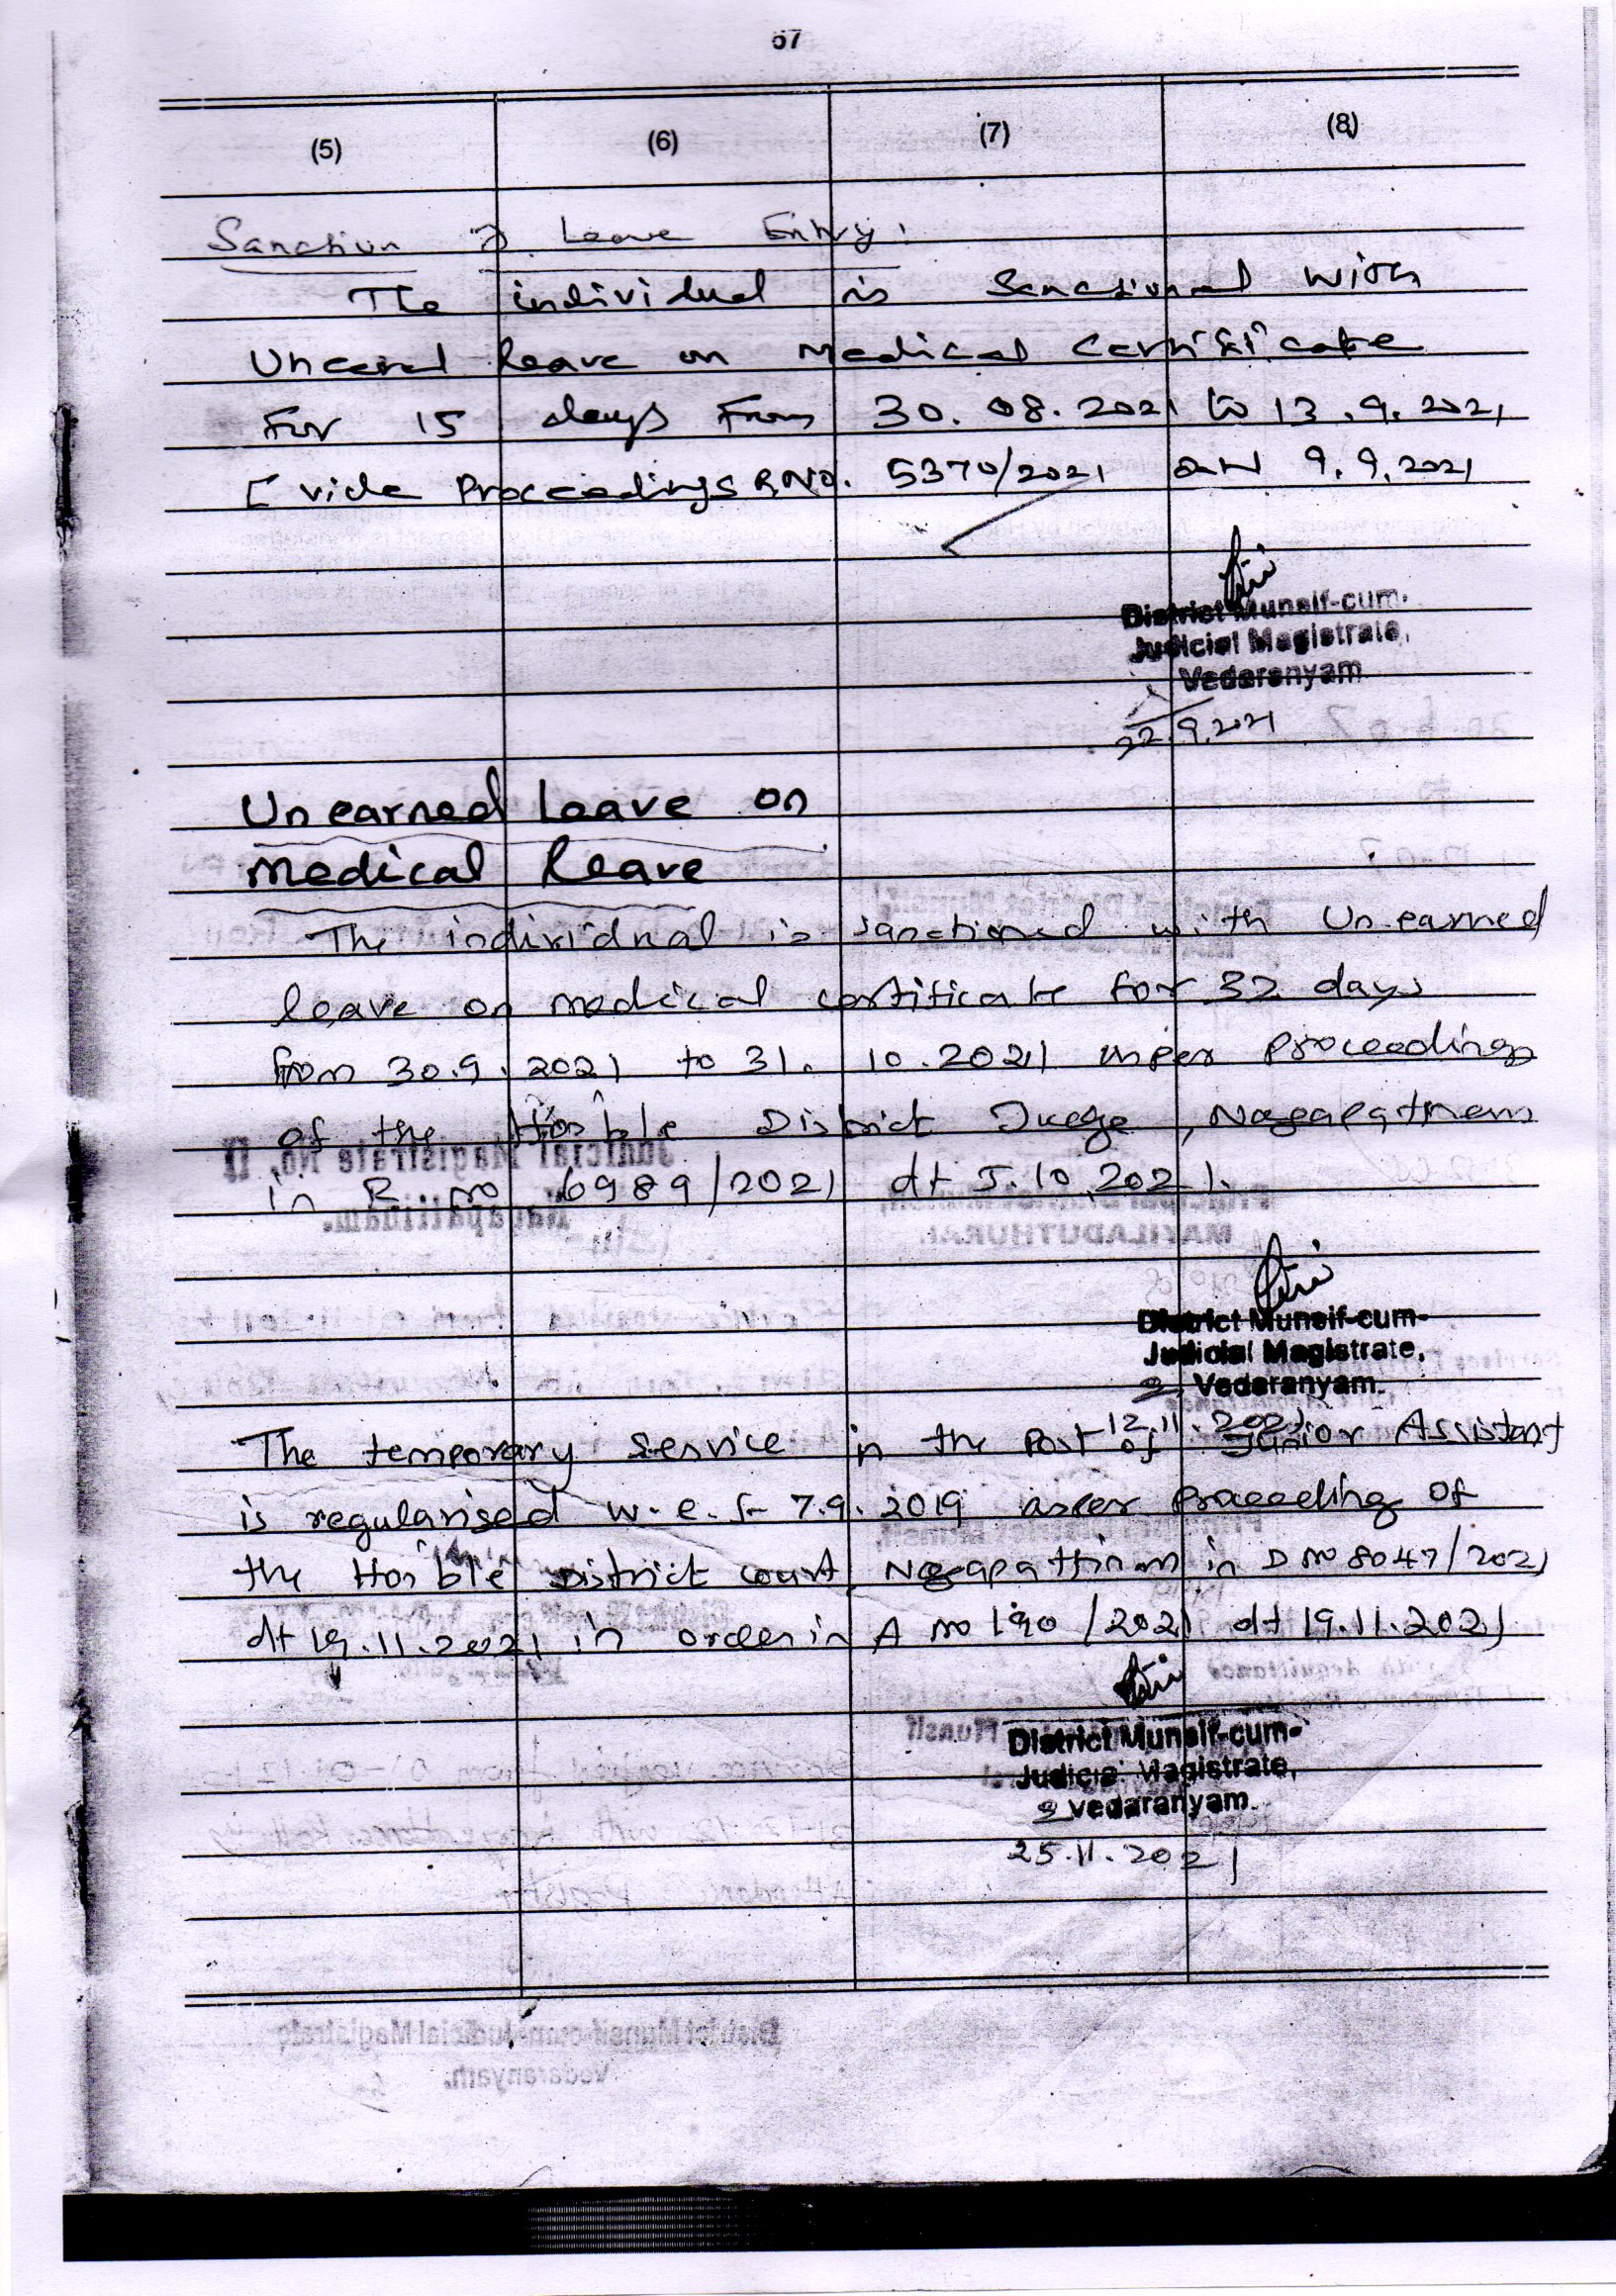 67
(5) (6) (7) (8)
Sanction of Leave Entry:
The individual is Sanctioned with
Unearned leave on Medical Certificate
For 15 days From 30.08.2021 to 13.9.2021
[vide Proceedings R.No. 5370/2021 9.9.2021
District Munsif-cum-
Judicial Magistrate,
Vedaranyam
22.9.2021
Unearned Leave on
Medical leave
The individual is sanctioned with Unearned
leave on medical certificate for 32 days
from 30.9.2021 to 31.10.2021 proceedings
of the Hon'ble District Judge, Nagapattinam
in R. no 6989/2021 dt 5.10.2021.
District Munsif-cum-
Judicial Magistrate,
Vedaranyam.
12.11.2021
The temporary service in the Post of Junior Assistant
is regularised w.e.f 7.9.2019 as per proceeding of
the Hon'ble District court, Nagapattinam in D no 8047/2021
dt 19.11.2021 in order in A no 190/2021 dt 19.11.2021
District Munsif-cum-
Judicial Magistrate,
Vedaranyam.
25.11.2021